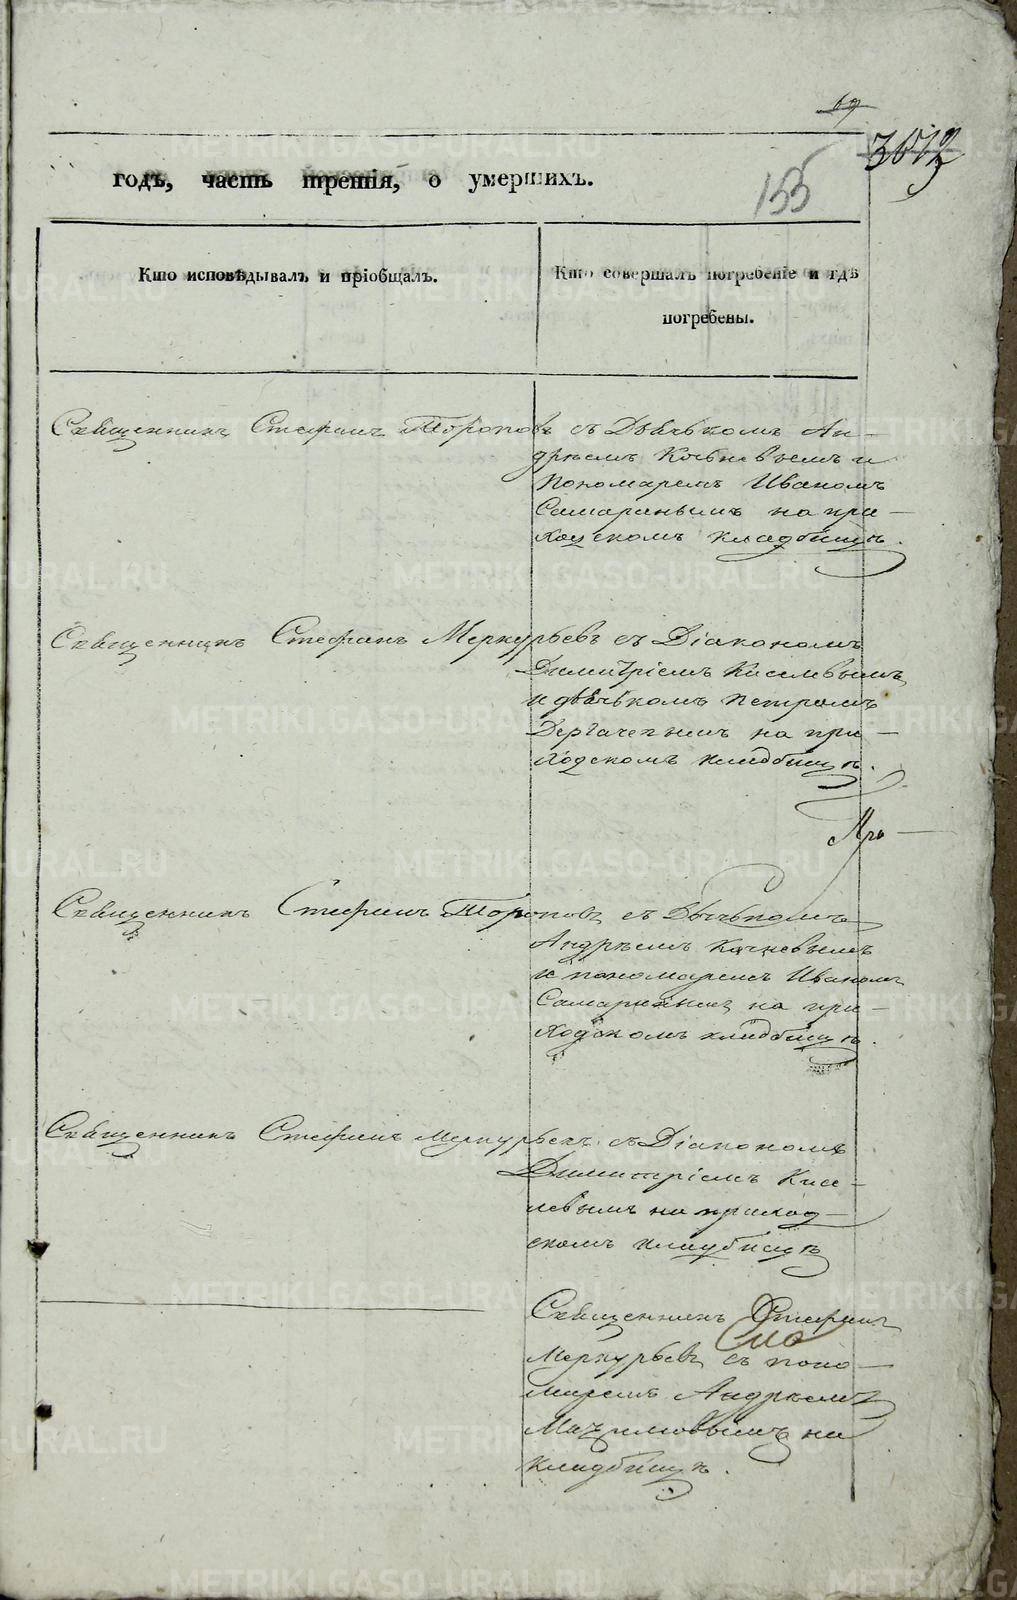 69
3012
155
годъ, часть третія, о умершихъ.
Кто исповѣдывалъ и пріобщалъ.
Кто совершалъ погребеніе и гдѣ
погребены.
Священникъ Стефанъ Тороповъ съ Дьячкомъ Ан-
дреемъ
Пономаремъ Иваномъ
на при-
ходскомъ кладбищѣ.
Священникъ Стефанъ Меркурьевъ съ Діакономъ
Димитріемъ Киселевымъ
и дьячькомъ Петромъ
на при-
ходскомъ кладбищѣ.
Священникъ Стефанъ Тороповъ съ Дьячькомъ
Андрѣемъ
и пономаремъ Иваномъ
на при-
ходскомъ кладбищѣ.
Священникъ Стефанъ Меркурьевъ съ Діакономъ
Димитріемъ Кисе-
левымъ на приход-
скомъ кладбищѣ
Священникъ Стефанъ
Меркурьевъ съ поно-
маремъ Андрѣемъ
на
кладбищѣ.
METRIKI.GASO-URAL.RU